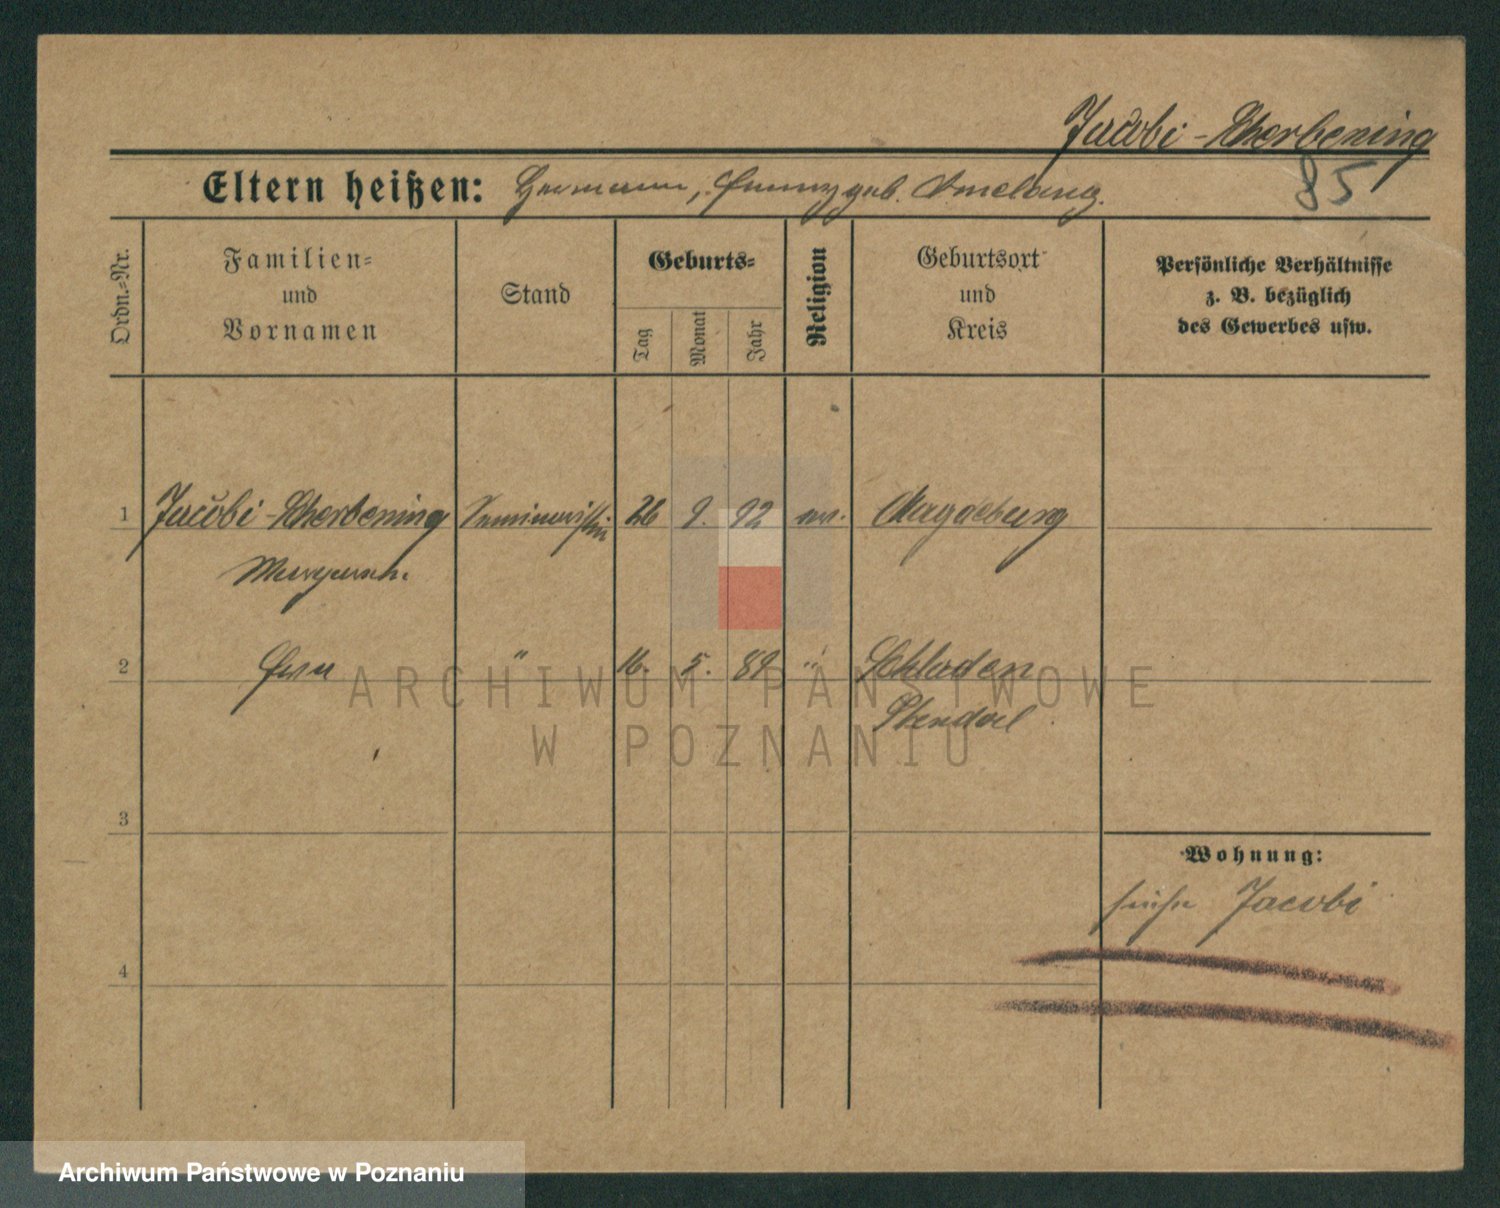 Jacobi-Scherbening
85
Eltern heißen: Hermann, Fanny geb. Amelang.
Ordn.-Nr.
Familien-
und
Vornamen
Stand
Geburts-
Tag
Monat
Jahr
Religion
Geburtsort
und
Kreis
Persönliche Verhältnisse
z. B. bezüglich
des Gewerbes usw.
1 Jacobi-Scherbening Seminaristin 26 9. 92 ev. Magdeburg
Margareth.
2 " 16. 5. 89 " Schladen
Stendal
3
4
Wohnung:
siehe Jacobi
ARCHIWUM PAŃSTWOWE
W POZNANIU
Archiwum Państwowe w Poznaniu